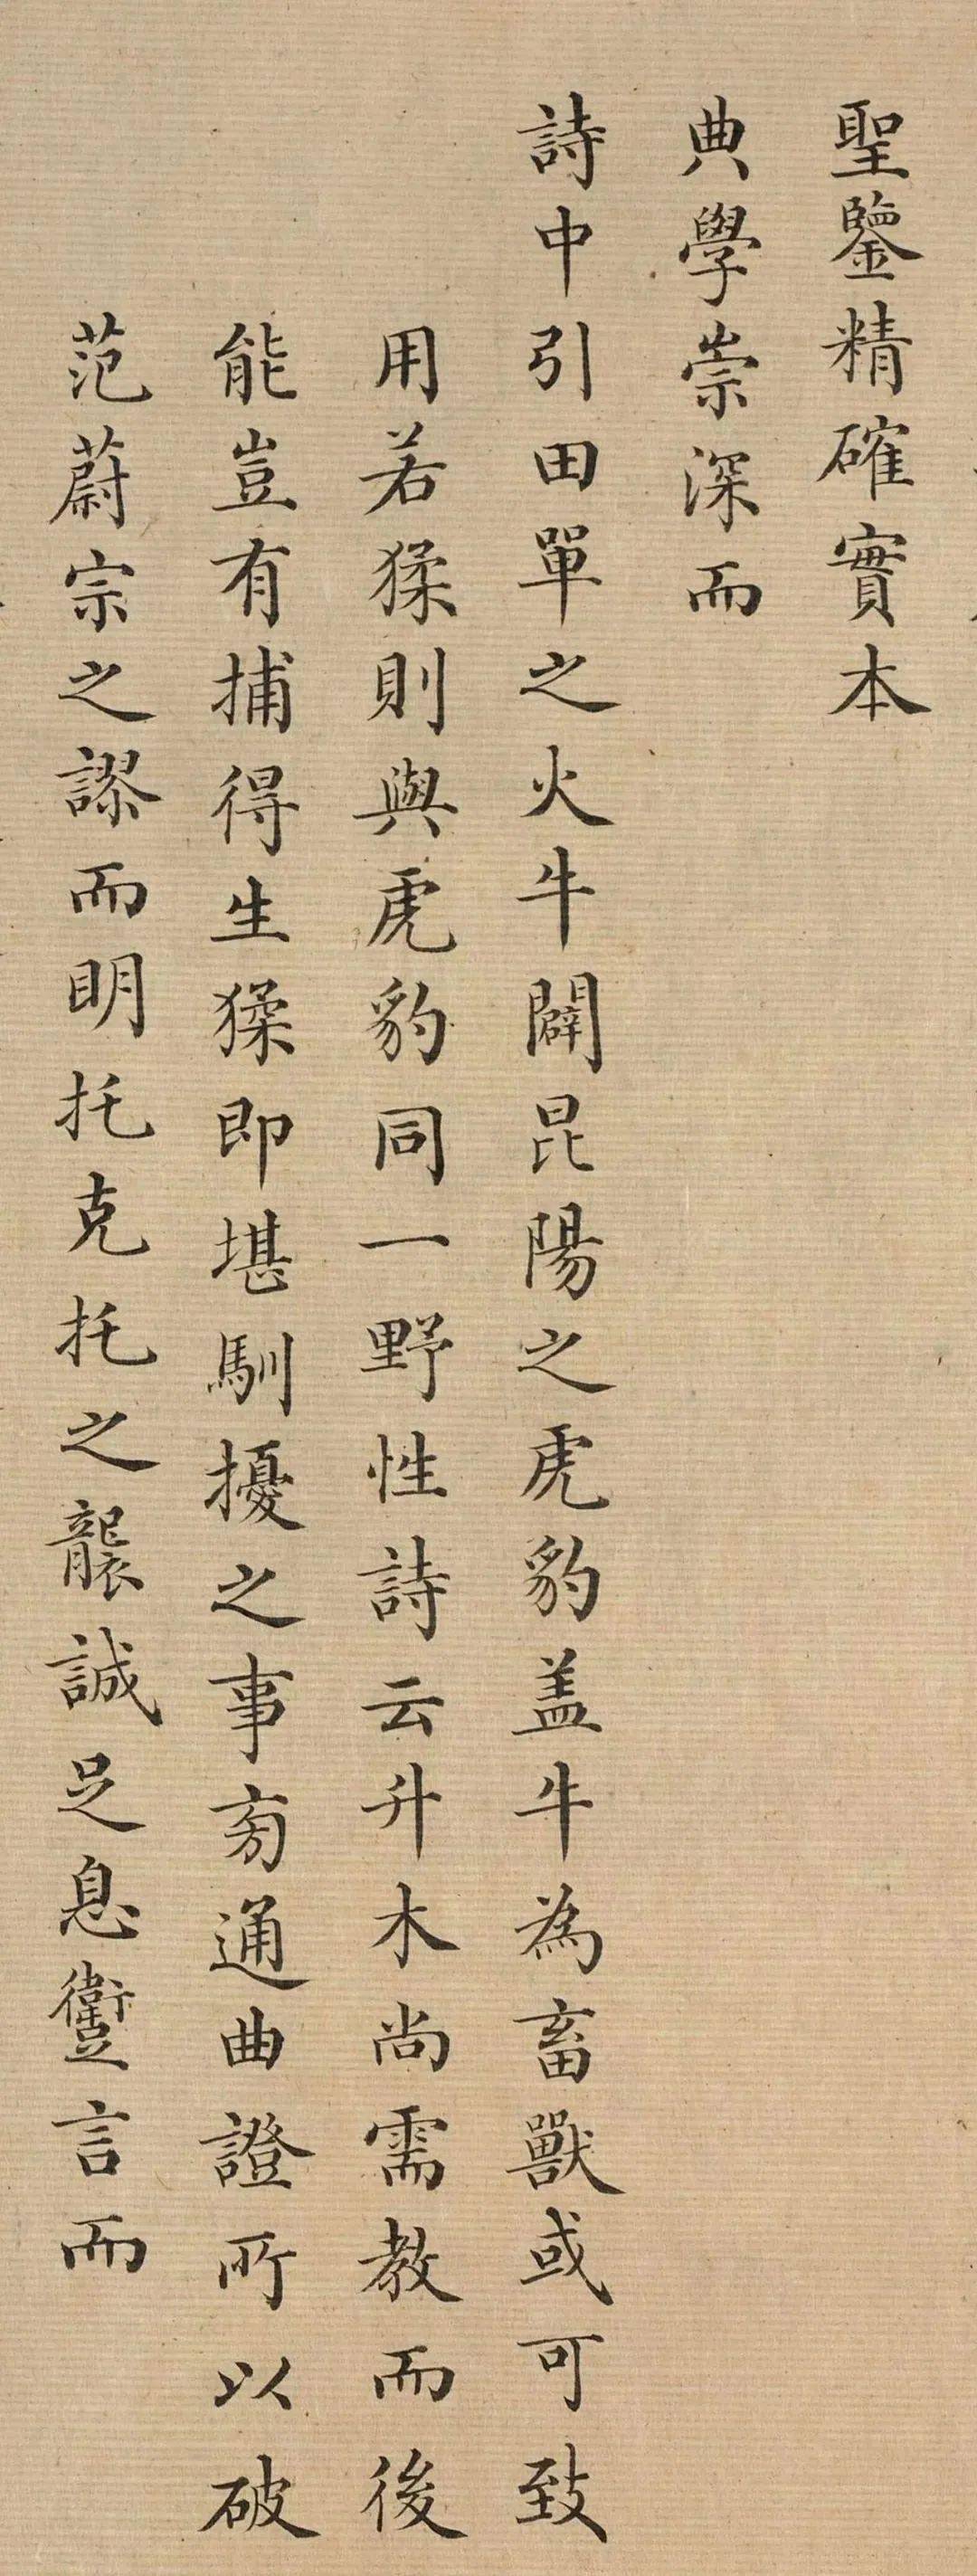 聖鑒精確實本
典學崇深而
詩中引田單之火牛闢昆陽之虎豹盖牛為畜獸或可致
用若猱則與虎豹同一野性詩云升木尚需教而後
能豈有捕得生猱即堪馴擾之事㫄通曲證所以破
范蔚宗之謬而明托克托之襲誠足息讆言而